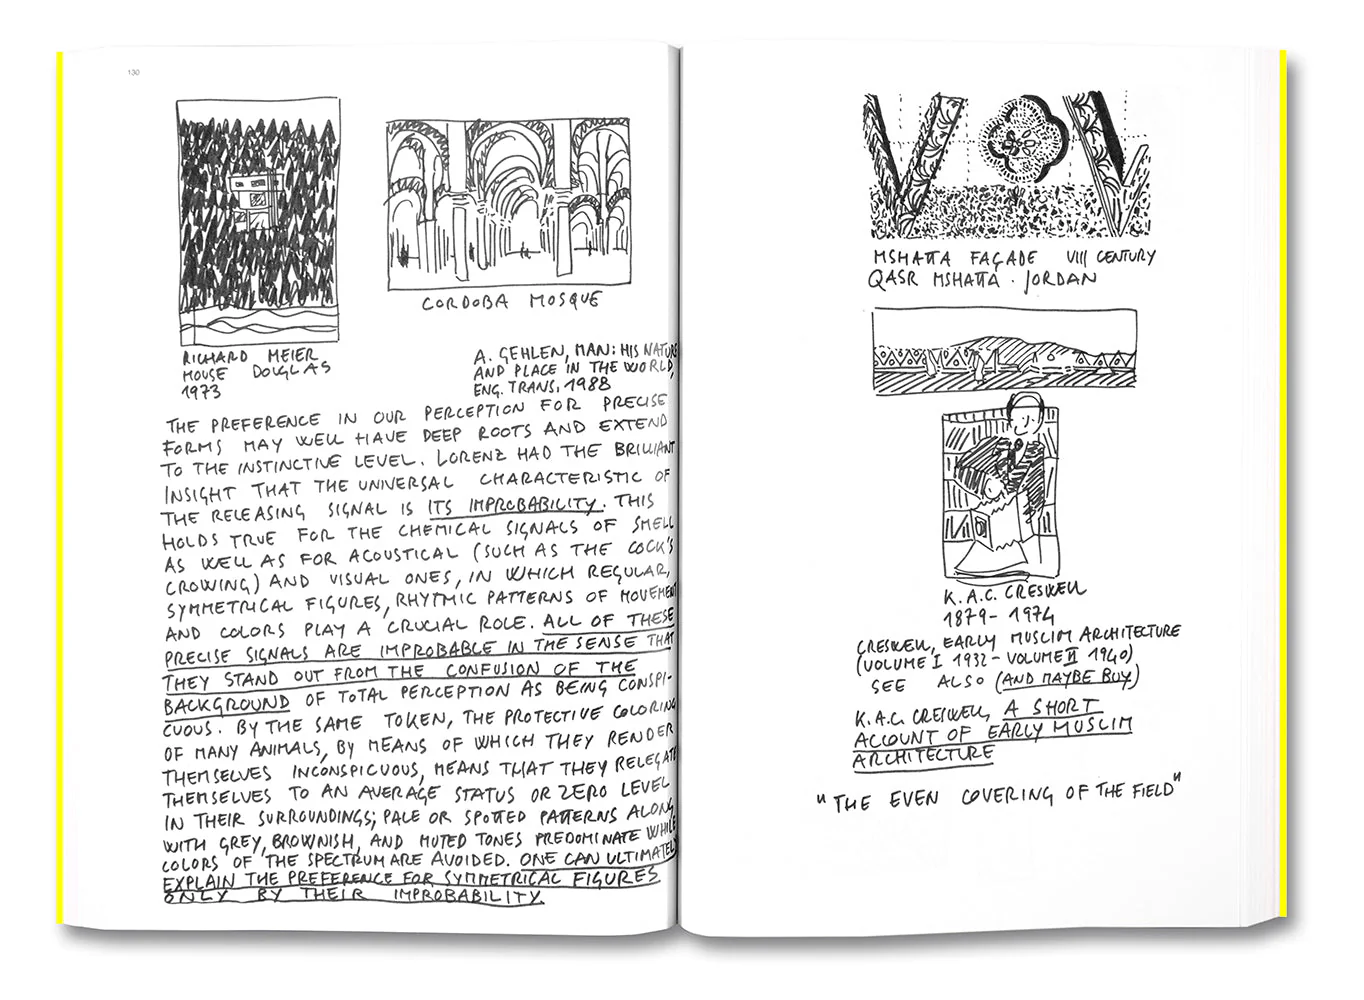 130
RICHARD MEIER
HOUSE DOUGLAS
1973
CORDOBA MOSQUE
A. GEHLEN, MAN: HIS NATURE
AND PLACE IN THE WORLD,
ENG. TRANS, 1988
THE PREFERENCE IN OUR PERCEPTION FOR PRECISE
FORMS MAY WELL HAVE DEEP ROOTS AND EXTEND
TO THE INSTINCTIVE LEVEL. LORENZ HAD THE BRILLIANT
INSIGHT THAT THE UNIVERSAL CHARACTERISTIC OF
THE RELEASING SIGNAL IS ITS IMPROBABILITY. THIS
HOLDS TRUE FOR THE CHEMICAL SIGNALS OF SMELL
AS WELL AS FOR ACOUSTICAL (SUCH AS THE COCK'S
CROWING) AND VISUAL ONES, IN WHICH REGULAR,
SYMMETRICAL FIGURES, RHYTMIC PATTERNS OF MOVEMENT
AND COLORS PLAY A CRUCIAL ROLE. ALL OF THESE
PRECISE SIGNALS ARE IMPROBABLE IN THE SENSE THAT
THEY STAND OUT FROM THE CONFUSION OF THE
BACKGROUND OF TOTAL PERCEPTION AS BEING CONSPI-
CUOUS. BY THE SAME TOKEN, THE PROTECTIVE COLORING
OF MANY ANIMALS, BY MEANS OF WHICH THEY RENDER
THEMSELVES INCONSPICUOUS, MEANS THAT THEY RELEGATE
THEMSELVES TO AN AVERAGE STATUS OR ZERO LEVEL
IN THEIR SURROUNDINGS; PALE OR SPOTTED PATTERNS ALONG
WITH GREY, BROWNISH, AND MUTED TONES PREDOMINATE WHILE
COLORS OF THE SPECTRUM ARE AVOIDED. ONE CAN ULTIMATELY
EXPLAIN THE PREFERENCE FOR SYMMETRICAL FIGURES
ONLY BY THEIR IMPROBABILITY.
MSHATTA FAÇADE VIII CENTURY
QASR MSHATTA · JORDAN
K.A.C. CRESWELL
1879 - 1974
CRESWELL, EARLY MUSLIM ARCHITECTURE
(VOLUME I 1932 - VOLUME II 1940)
SEE ALSO (AND MAYBE BUY)
K.A.C. CRESWELL, A SHORT
ACCOUNT OF EARLY MUSLIM
ARCHITECTURE
"THE EVEN COVERING OF THE FIELD"